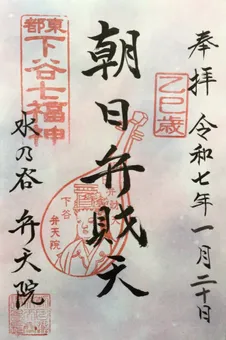 奉拝 令和七年一月二十日
乙巳歳
朝日弁財天
東都
下谷七福神
下谷
弁天院
水の谷 弁天院